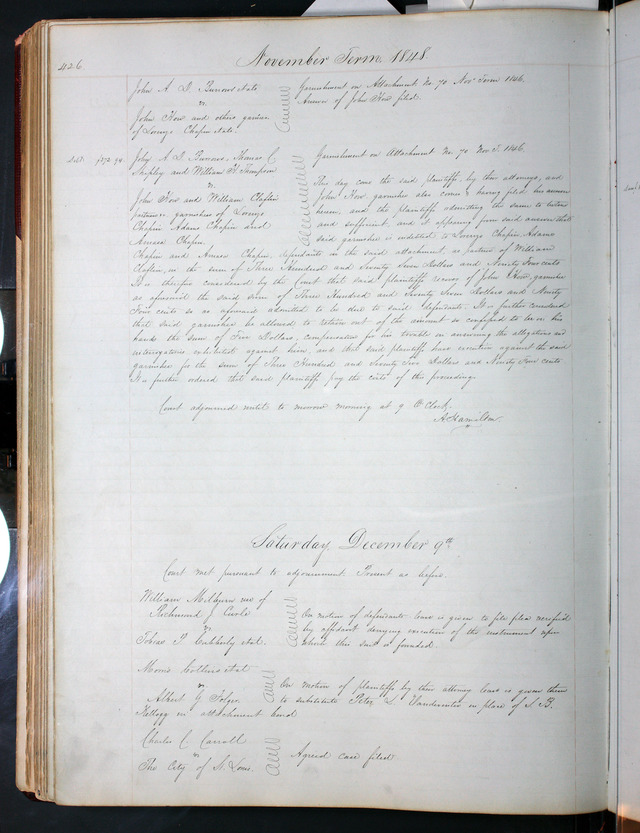 426
November Term 1848
John A D Burrows et al
vs
John How and others garnishees
of Lorenzo Chapin et al.
Garnishment on Attachment No. 70 Nov Term 1846.
Answer of John How filed.
Debt $372.94
John A D Burrows, Thomas C
Shipley and William H. Thompson
vs
John How and William Claflin
partners garnishees of Lorenzo
Chapin Adams Chapin and
Amasa Chapin
Garnishment on Attachment No. 70 Nov T. 1846.
This day come the said plaintiffs by their attorneys, and
John How garnishee also comes & having filed his answer
herein, and the plaintiffs admitting the same to be true
and sufficient, and it appearing from said answer that
said garnishee is indebted to Lorenzo Chapin, Adams
Chapin and Amasa Chapin, defendants in the said attachment, as partner of William
Claflin, in the sum of Three Hundred and Seventy Seven Dollars and Ninety Four cents
It is therefore considered by the Court that said plaintiffs recover of John How, garnishee
as aforesaid the said sum of Three Hundred and Seventy Seven Dollars and Ninety
Four cents so as aforesaid admitted to be due to said defendants. It is further considered
that said garnishee be allowed to retain out of the amount so confessed to be in his
hands the sum of Five Dollars, compensation for his trouble in answering the allegations and
interrogatories exhibited against him, and that said plaintiffs have execution against the said
garnishee for the sum of Three Hundred and Seventy Two Dollars and Ninety Four cents
It is further ordered that said plaintiffs pay the costs of this proceeding.
Court adjourned until to morrow morning at 9 O'Clock.
A Hamilton
Saturday December 9th
Court met pursuant to adjournment. Present as before.
William Milburn use of
Richmond J Curle
vs
Tobias P. et al.
On motion of defendants leave is given to file plea verified
by affidavit denying execution of the instrument upon
which this suit is founded.
Morris Collins et al
vs
Albert G. Folger
On motion of plaintiffs by their attorney leave is given them
to substitute Peter L Vanderventer in place of S. B.
Kellogg in attachment bond
Charles C. Carroll
vs
The City of St. Louis.
Agreed case filed